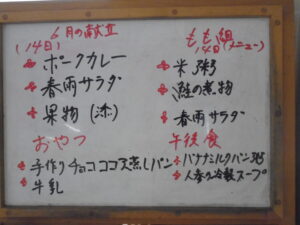 6月の献立
(14日)
ポークカレー
春雨サラダ
果物(漆)
おやつ
手作りチョコココア蒸しパン
牛乳
もも組
14日(メニュー)
米粥
鮭の煮物
春雨サラダ
午後食
バナナミルクパン粥
人参の冷製スープ